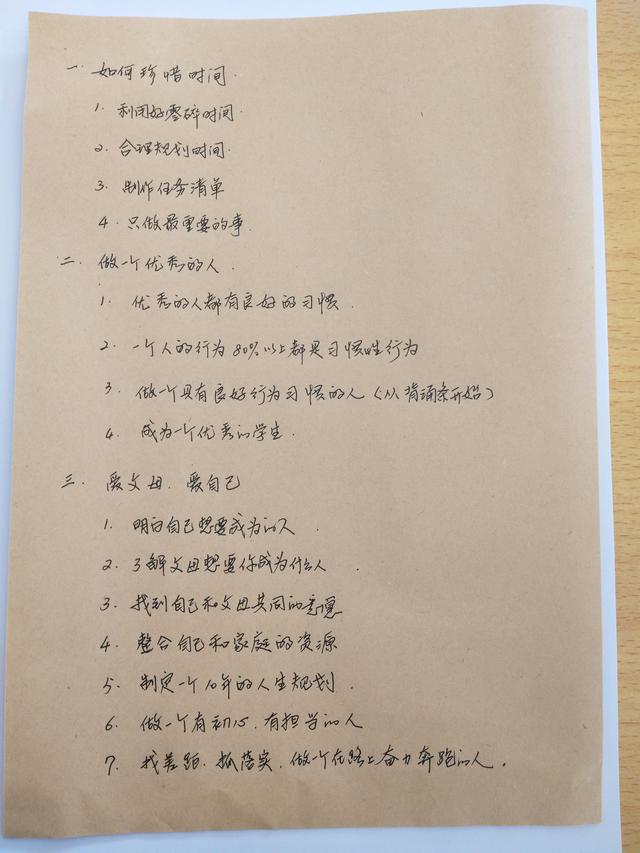 一 如何珍惜时间.
1. 利用好零碎时间.
2. 合理规划时间.
3. 制作任务清单
4. 只做最重要的事.
二. 做一个优秀的人.
1. 优秀的人都有良好的习惯.
2. 一个人的行为80%以上都是习惯性行为
3. 做一个具有良好行为习惯的人(从背诵条开始)
4. 成为一个优秀的学生.
三. 爱父母. 爱自己
1. 明白自己想要成为的人.
2. 了解父母想要你成为什么人.
3. 找到自己和父母共同的意愿
4. 整合自己和家庭的资源
5. 制定一个10年的人生规划.
6. 做一个有初心.有担当的人
7. 找差距.抓落实.做一个在路上奋力奔跑的人.